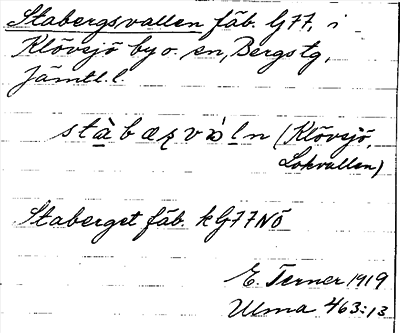 Stabergsvallen fäb. G77, i
Klövsjö by o. sn, Bergs tg,
Jämtl. l.
stàbæʀvàln (Klövsjö,
Lokvallen)
Staberget fäb. k G77NÖ
E. Terner 1919
Ulma 463:13